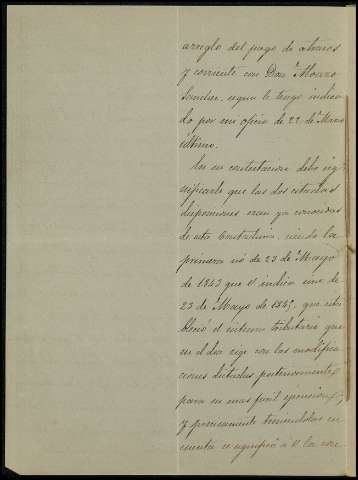 arreglo del pago de atrasos
y corriente con Don Alonzo
Sanchez, segun le tengo indica-
do por mi oficio de 22 de Marzo
último.
En su contestacion debo sig-
nificarle que las dos citadas
disposiciones eran ya conocidas
de esta Contaduria, siendo la
primera nó de 23 de Mayo
de 1843 que V. indica sino de
23 de Mayo de 1845, que esta-
bleció el sistema tributario que
en el dia rige con las modifica-
ciones dictadas posteriormente
para su mas facil ejecucion;
y precisamente teniendolas en
cuenta se significó a V. la con-